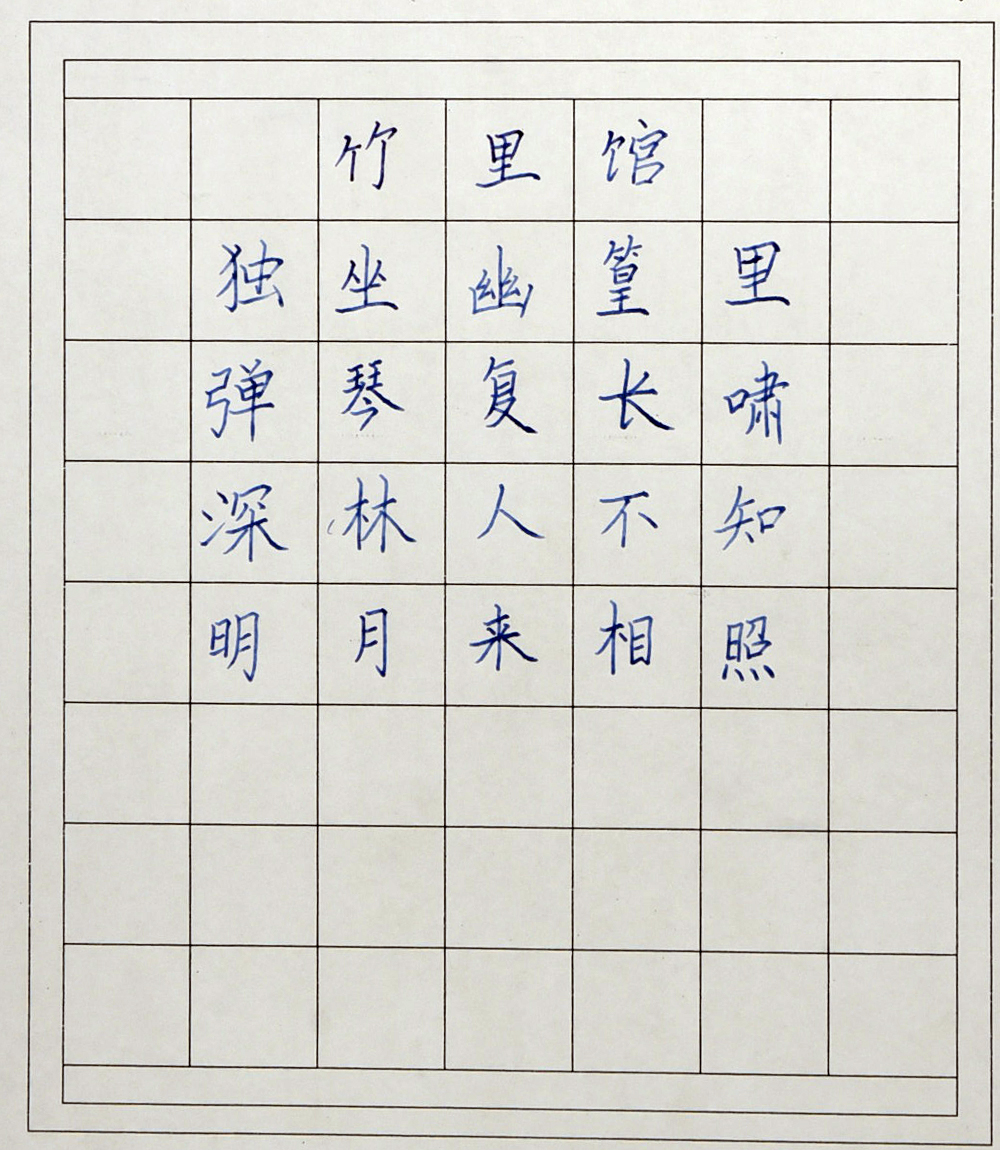 竹里馆
独坐幽篁里
弹琴复长啸
深林人不知
明月来相照